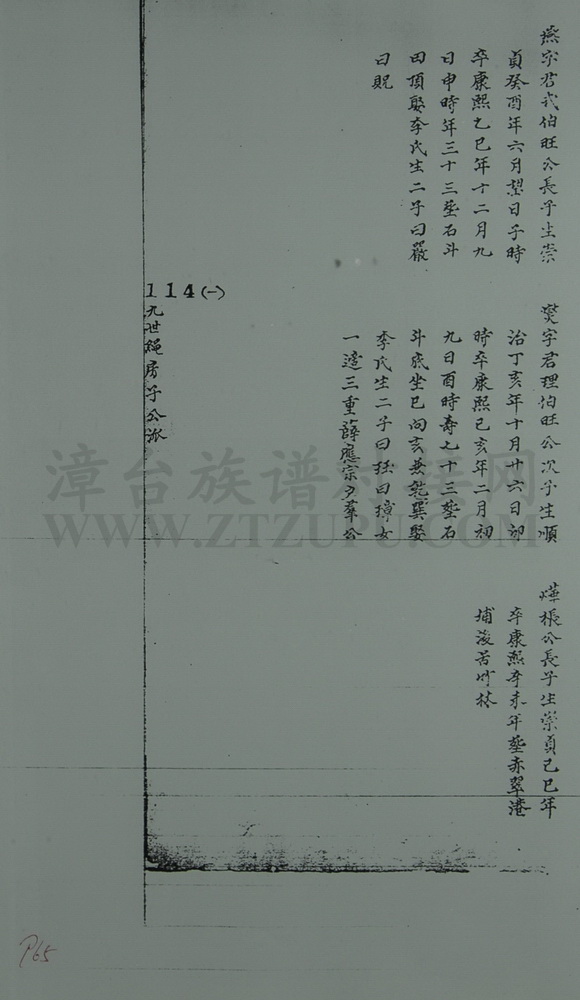 燕字君弌伯旺公長子生崇
貞癸酉年六月望日子時
卒康熙乙巳年十二月九
日申時年三十三塟石斗
田頂娶李氏生二子曰嚴
曰貺
燮字君理伯旺公次子生順
治丁亥年十月廿六日卯
時卒康熙己亥年二月初
九日酉時壽七十三塟石
斗底坐巳向亥兼乾巽娶
李氏生二子曰珏曰 女
一適三重薛應宗 羣公
燁振公長子生崇貞己巳年
卒康熙辛未年塟赤翠港
埔後苦竹林
114(一)
九世繩房子公派
漳台族谱对接网
WWW.ZTZUPU.COM
P65